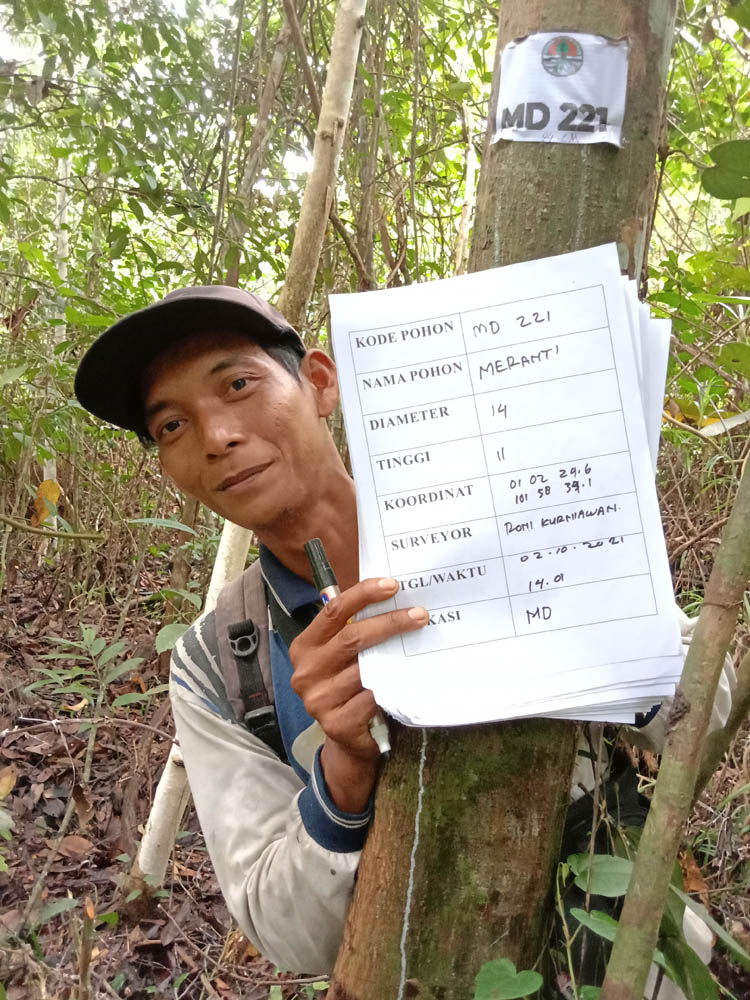 MD 221
KODE POHON MD 221
NAMA POHON MERANTI
DIAMETER 14
TINGGI 11
KOORDINAT 01 02 29.6
101 58 39.1
SURVEYOR ROMI KURNIAWAN.
TGL/WAKTU 02.10.2021
14.01
KASI MD